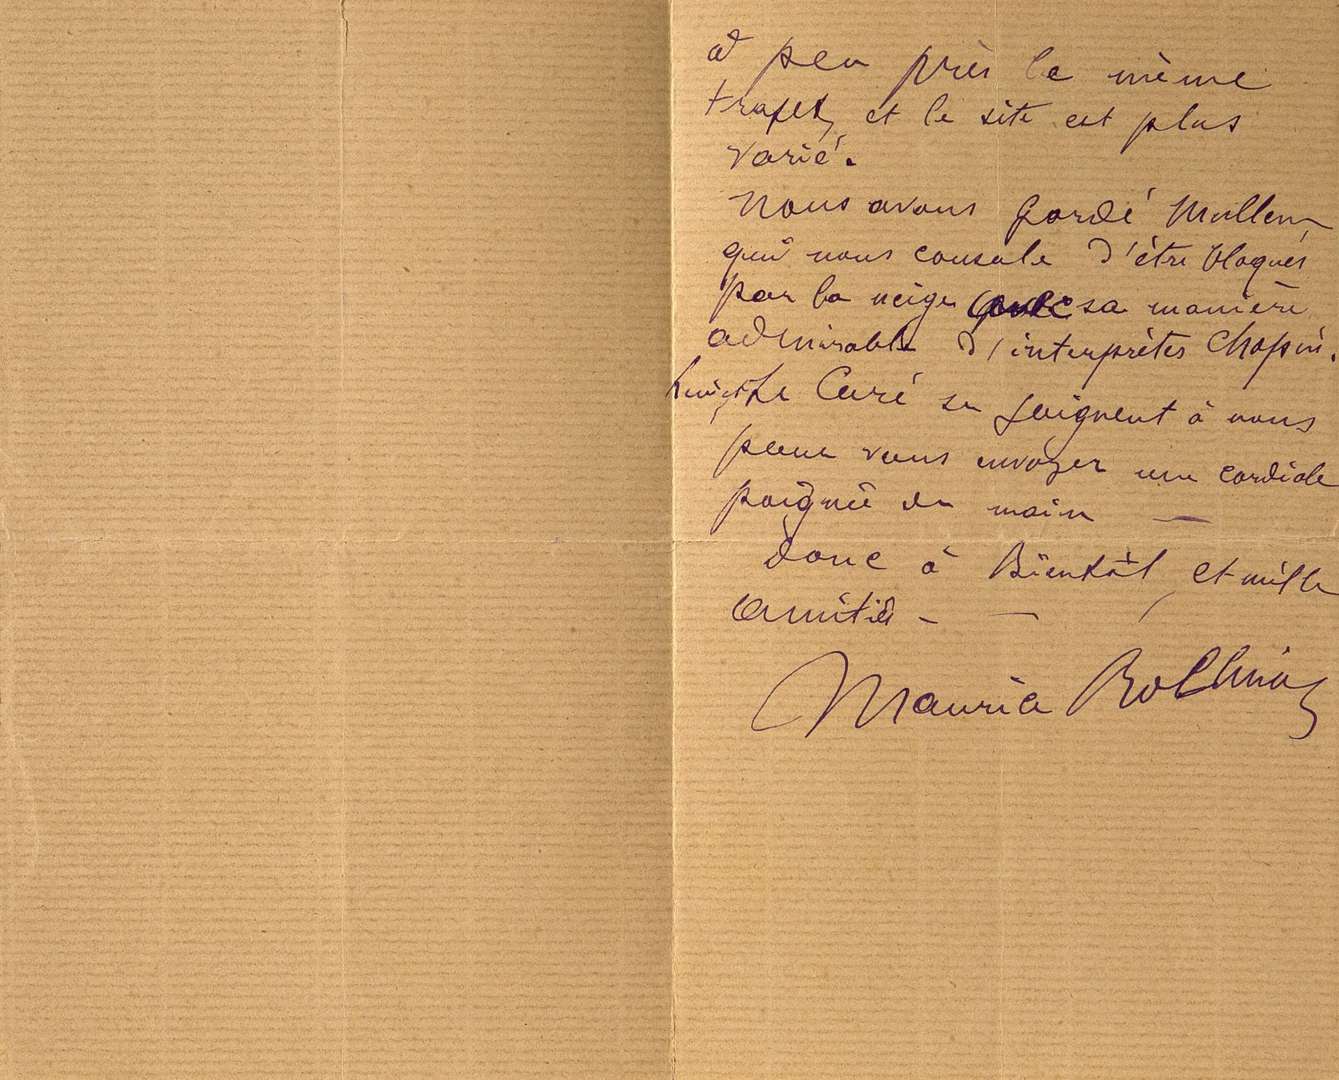 à peu près le même
trajet, et le site est plus
varié.
Nous avons gardé Mullem,
qui nous console d'être bloqués
par la neige par sa manière
admirable d'interprêter Chopin.
Le Curé se joignent à nous
pour vous envoyer une cordiale
poignée de main —
donc à Bientôt, et mille
amitiés —
Maurice Rollinat